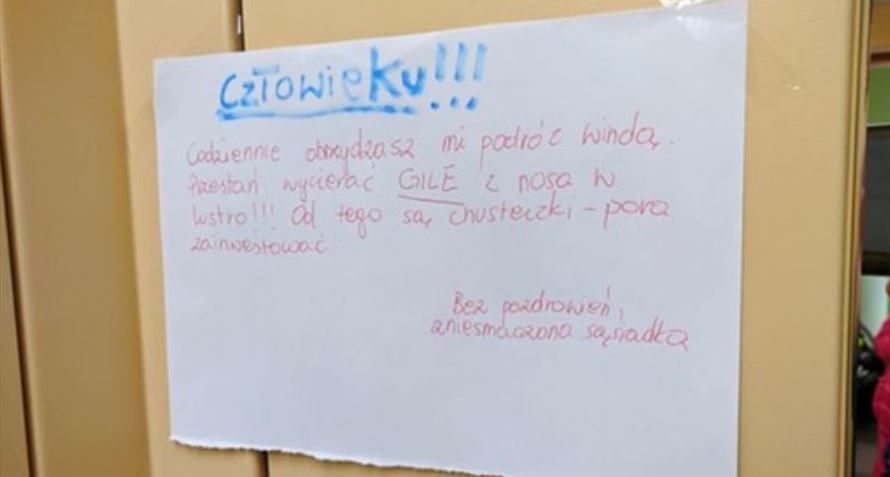 CZŁOWIEKU!!!
Codziennie obrzydzasz mi podróż windą.
Przestań wycierać GILE z nosa w
lustro!!! Od tego są chusteczki - pora
zainwestować
Bez pozdrowień,
zniesmaczona sąsiadka